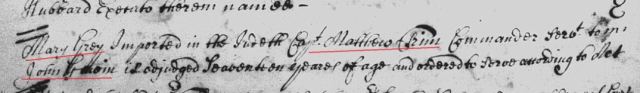 Hubbard Executo therein named
Mary Grey Imported in the Judeth Capt. Matthew Trim Commander Servt. to mr.
John is adjudged Seaventeen yeares of age and ordered to serve according to Act